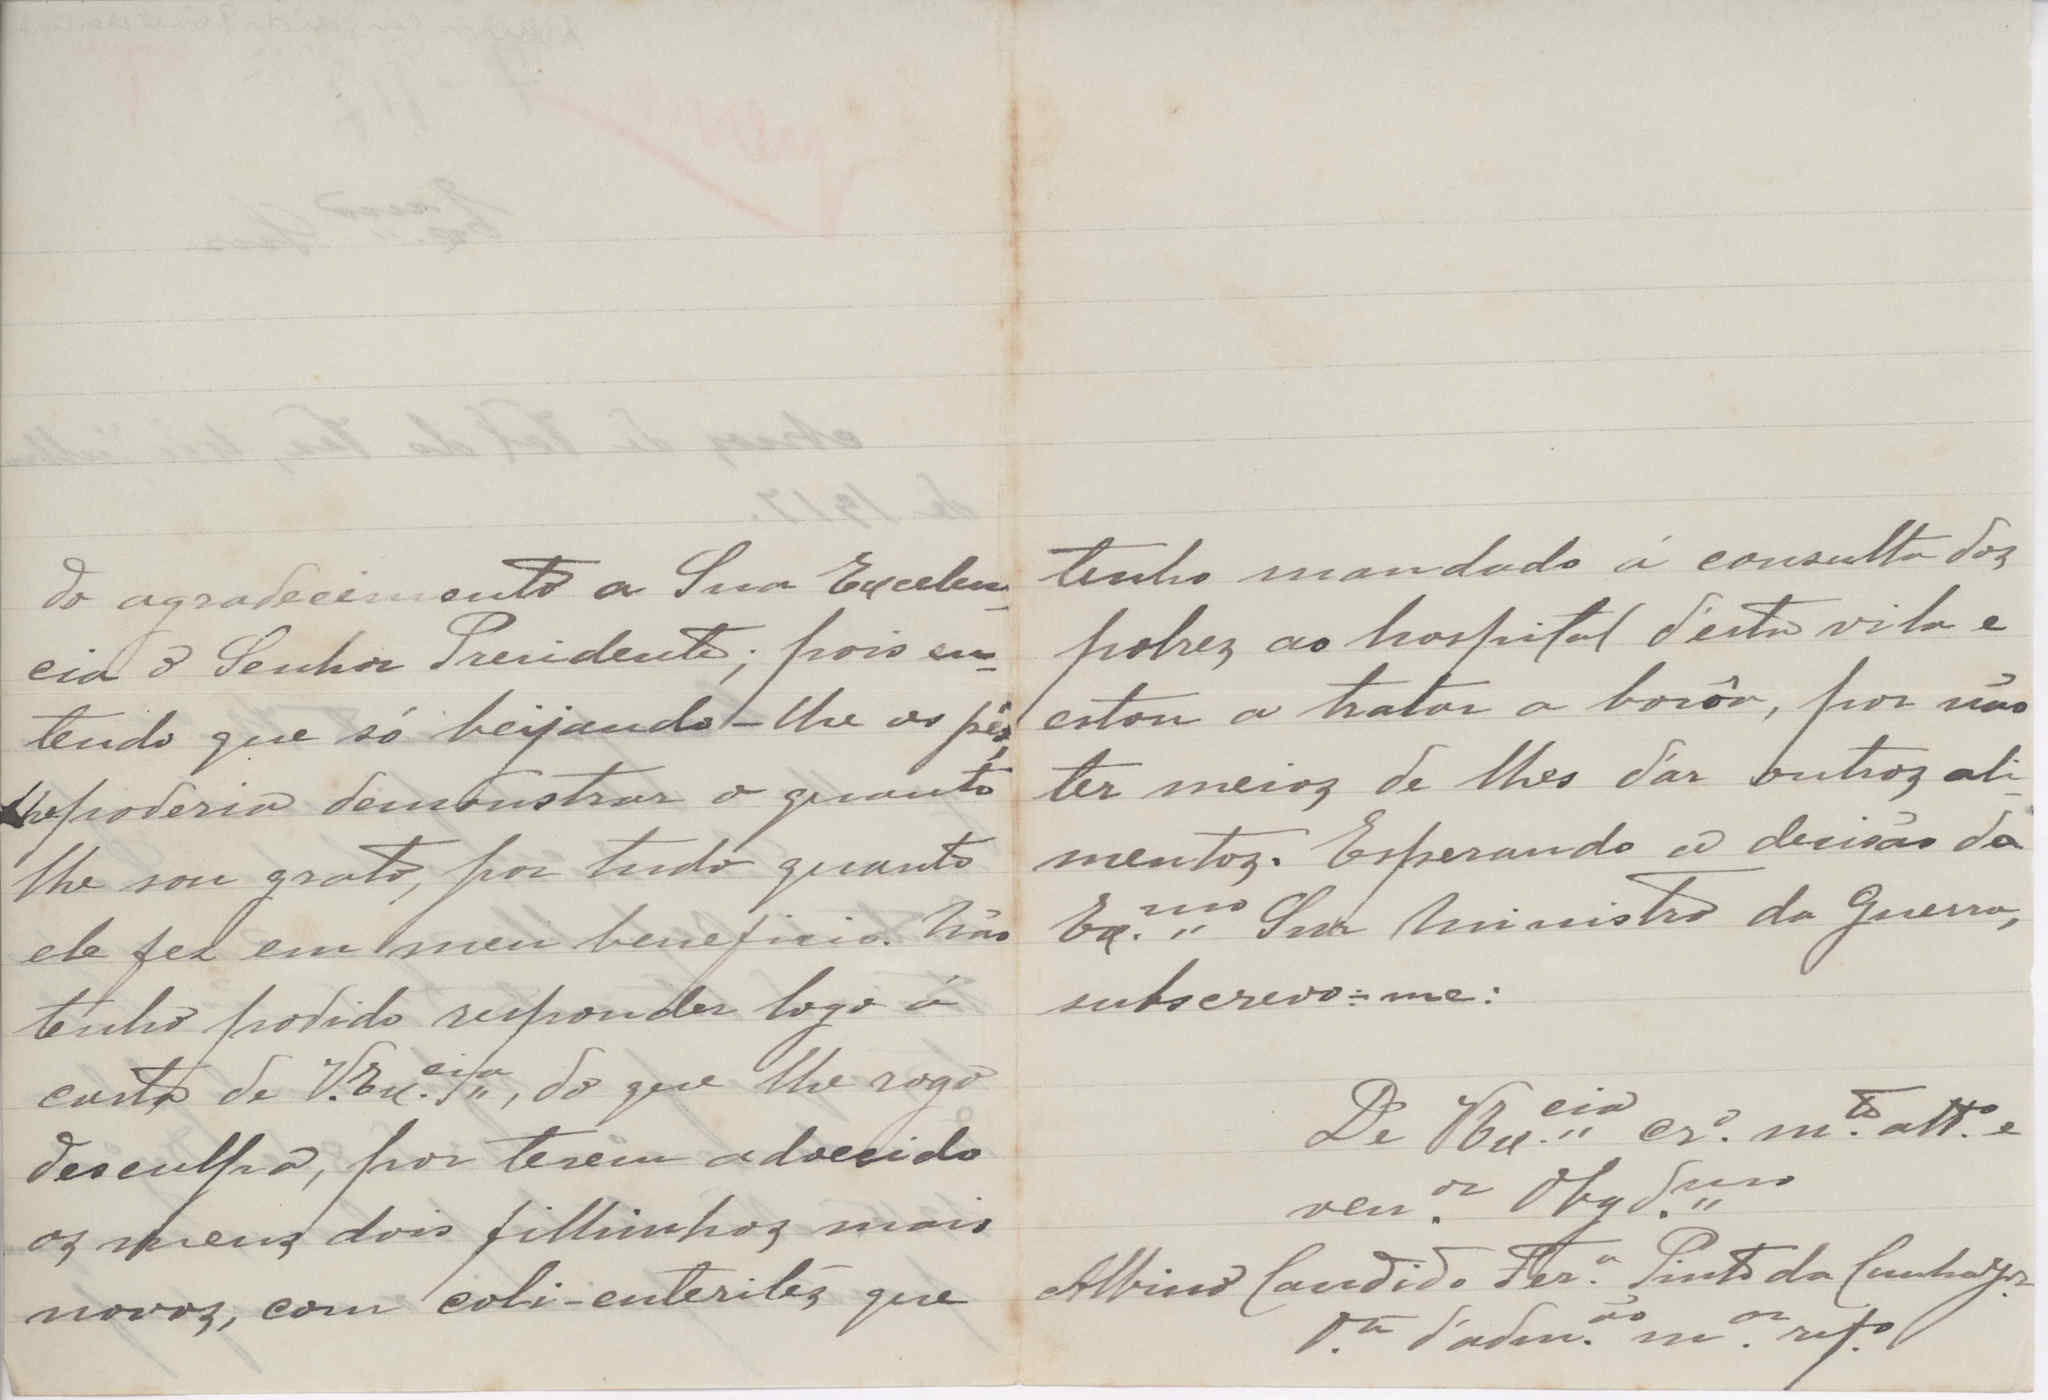 do agradecimento a Sua Excelen-
cia o Senhor Presidente; pois en-
tendo que só beijando-lhe os pés,
lhe poderia demonstrar o quanto
lhe sou grato, por tudo quanto
ele fez em meu beneficio. Não
tenho podido responder logo á
carta de V. Ex.cia, do que lhe rogo
desculpa, por terem adoecido
os meus dois filhinhos mais
novos, com coli-enterites que
tenho mandado á consulta dos
pobres ao hospital d'esta vila e
estou a tratar a borôa, por não
ter meios de lhes dar outros ali-
mentos. Esperando a decisão do
Ex.mo Snr Ministro da Guerra,
subscrevo-me:
De V Ex.cia cr.o m.to att.o e
ven.or Obgd.mo
Albino Candido Fer.a Pinto da Cunha
d'adm.ão m.or ref.o